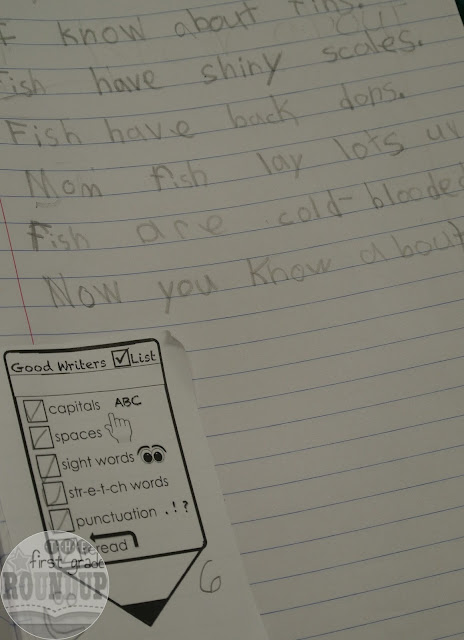 I know about fins.
Fish have shiny scales.
Fish have back dons.
Mom fish lay lots uv
Fish are cold-blooded
Now you know about
Good Writers List
capitals ABC
spaces
sight words
str-e-t-ch words
punctuation . ! ?
reread
THE
first grade
ROUNDUP
6